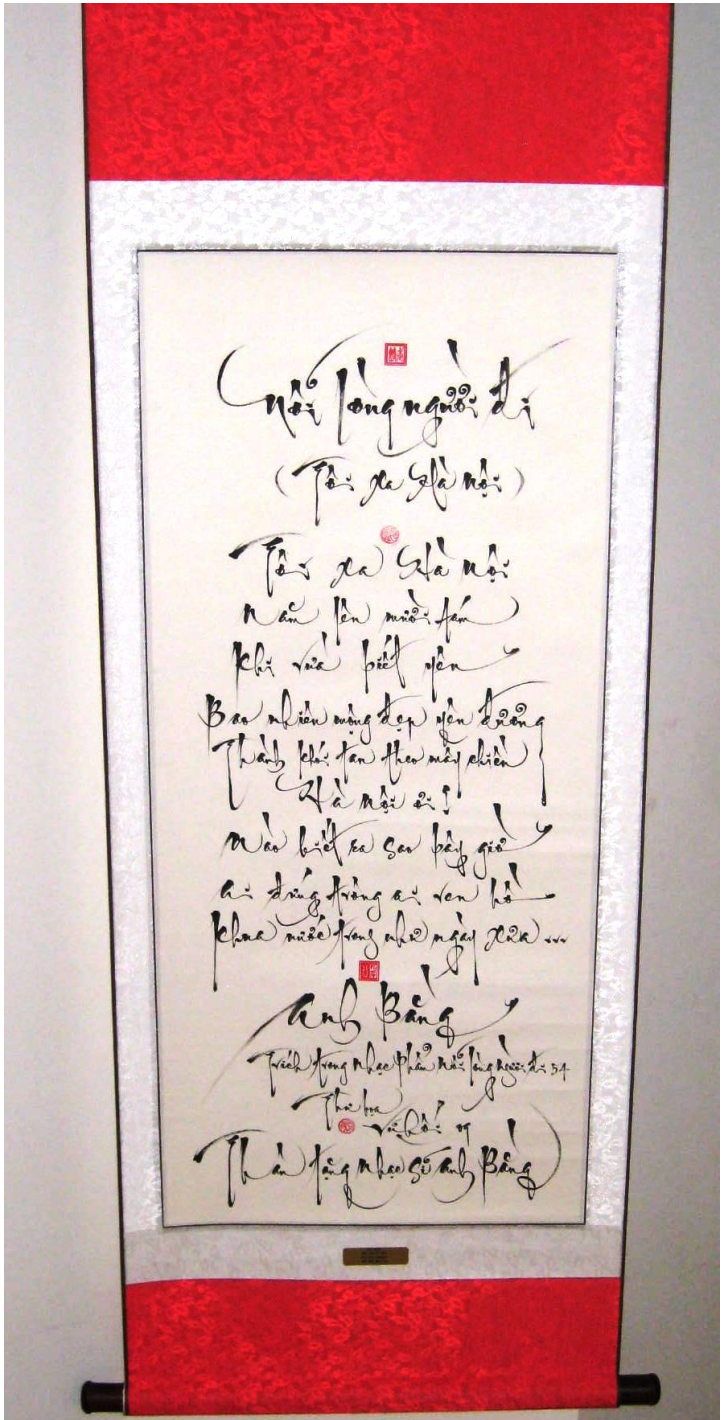 Nỗi lòng người đi
(Tôi xa Hà Nội)
Tôi xa Hà Nội
Năm lên mười tám
Khi vừa biết yêu
Bao nhiêu mộng đẹp yêu đương
Thành khói tan theo mây chiều
Hà Nội ơi!
Nào biết ra sao bây giờ
Ai đứng trông ai ven hồ
Khua nước trong như ngày xưa ...
Anh Bằng
Trích trong nhạc phẩm Nỗi lòng người đi 54
Thư họa
Vũ Hối 09
Thân tặng nhạc sĩ Anh Bằng